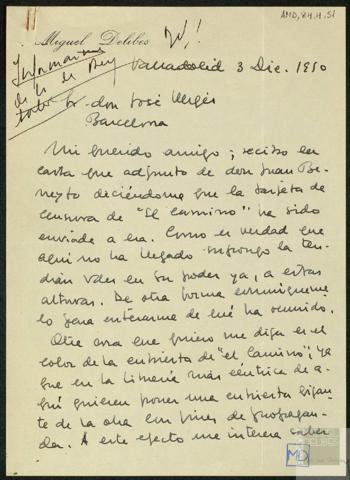 AMD, 84, 4, 51
Miguel Delibes
Valladolid 3 Dic. 1950
Sr. don José Vergés
Barcelona
Mi querido amigo; recibo en
carta que adjunto de don Juan Be-
neyto diciéndome que la tarjeta de
censura de "El camino" ha sido
enviada a esa. Como es verdad que
aquí no ha llegado supongo la ten-
drán Vdes en su poder ya, a estas
alturas. De otra forma comuníqueme-
lo para enterarme de qué ha ocurrido.
Otra cosa que quiero me diga es el
color de la cubierta de "El Camino"; ya
que en la librería más céntrica de a-
quí quieren poner una cubierta gigan-
te de la obra con fines de propagan-
da. A este efecto me interesa saber
MD
DELIBES